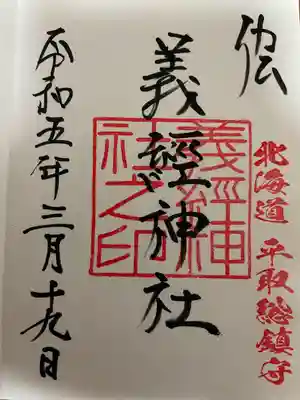 北海道 平取総鎮守
義經神社
義經神社之印
令和五年三月十九日